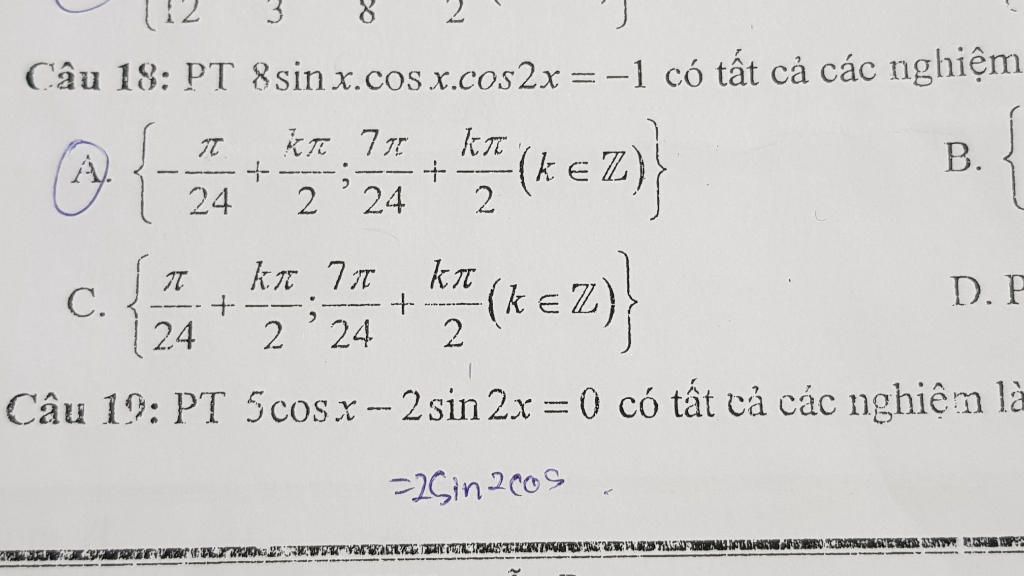 {12 3 8 2
Câu 18: PT 8sin x.cos x.cos2x = −1 có tất cả các nghiệm
A. {−π/24 + kπ/2; 7π/24 + kπ/2 (k ∈ ℤ)} B. {
C. {π/24 + kπ/2; 7π/24 + kπ/2 (k ∈ ℤ)} D. P
Câu 19: PT 5cos x − 2sin 2x = 0 có tất cả các nghiệm là
=2Sin2cos